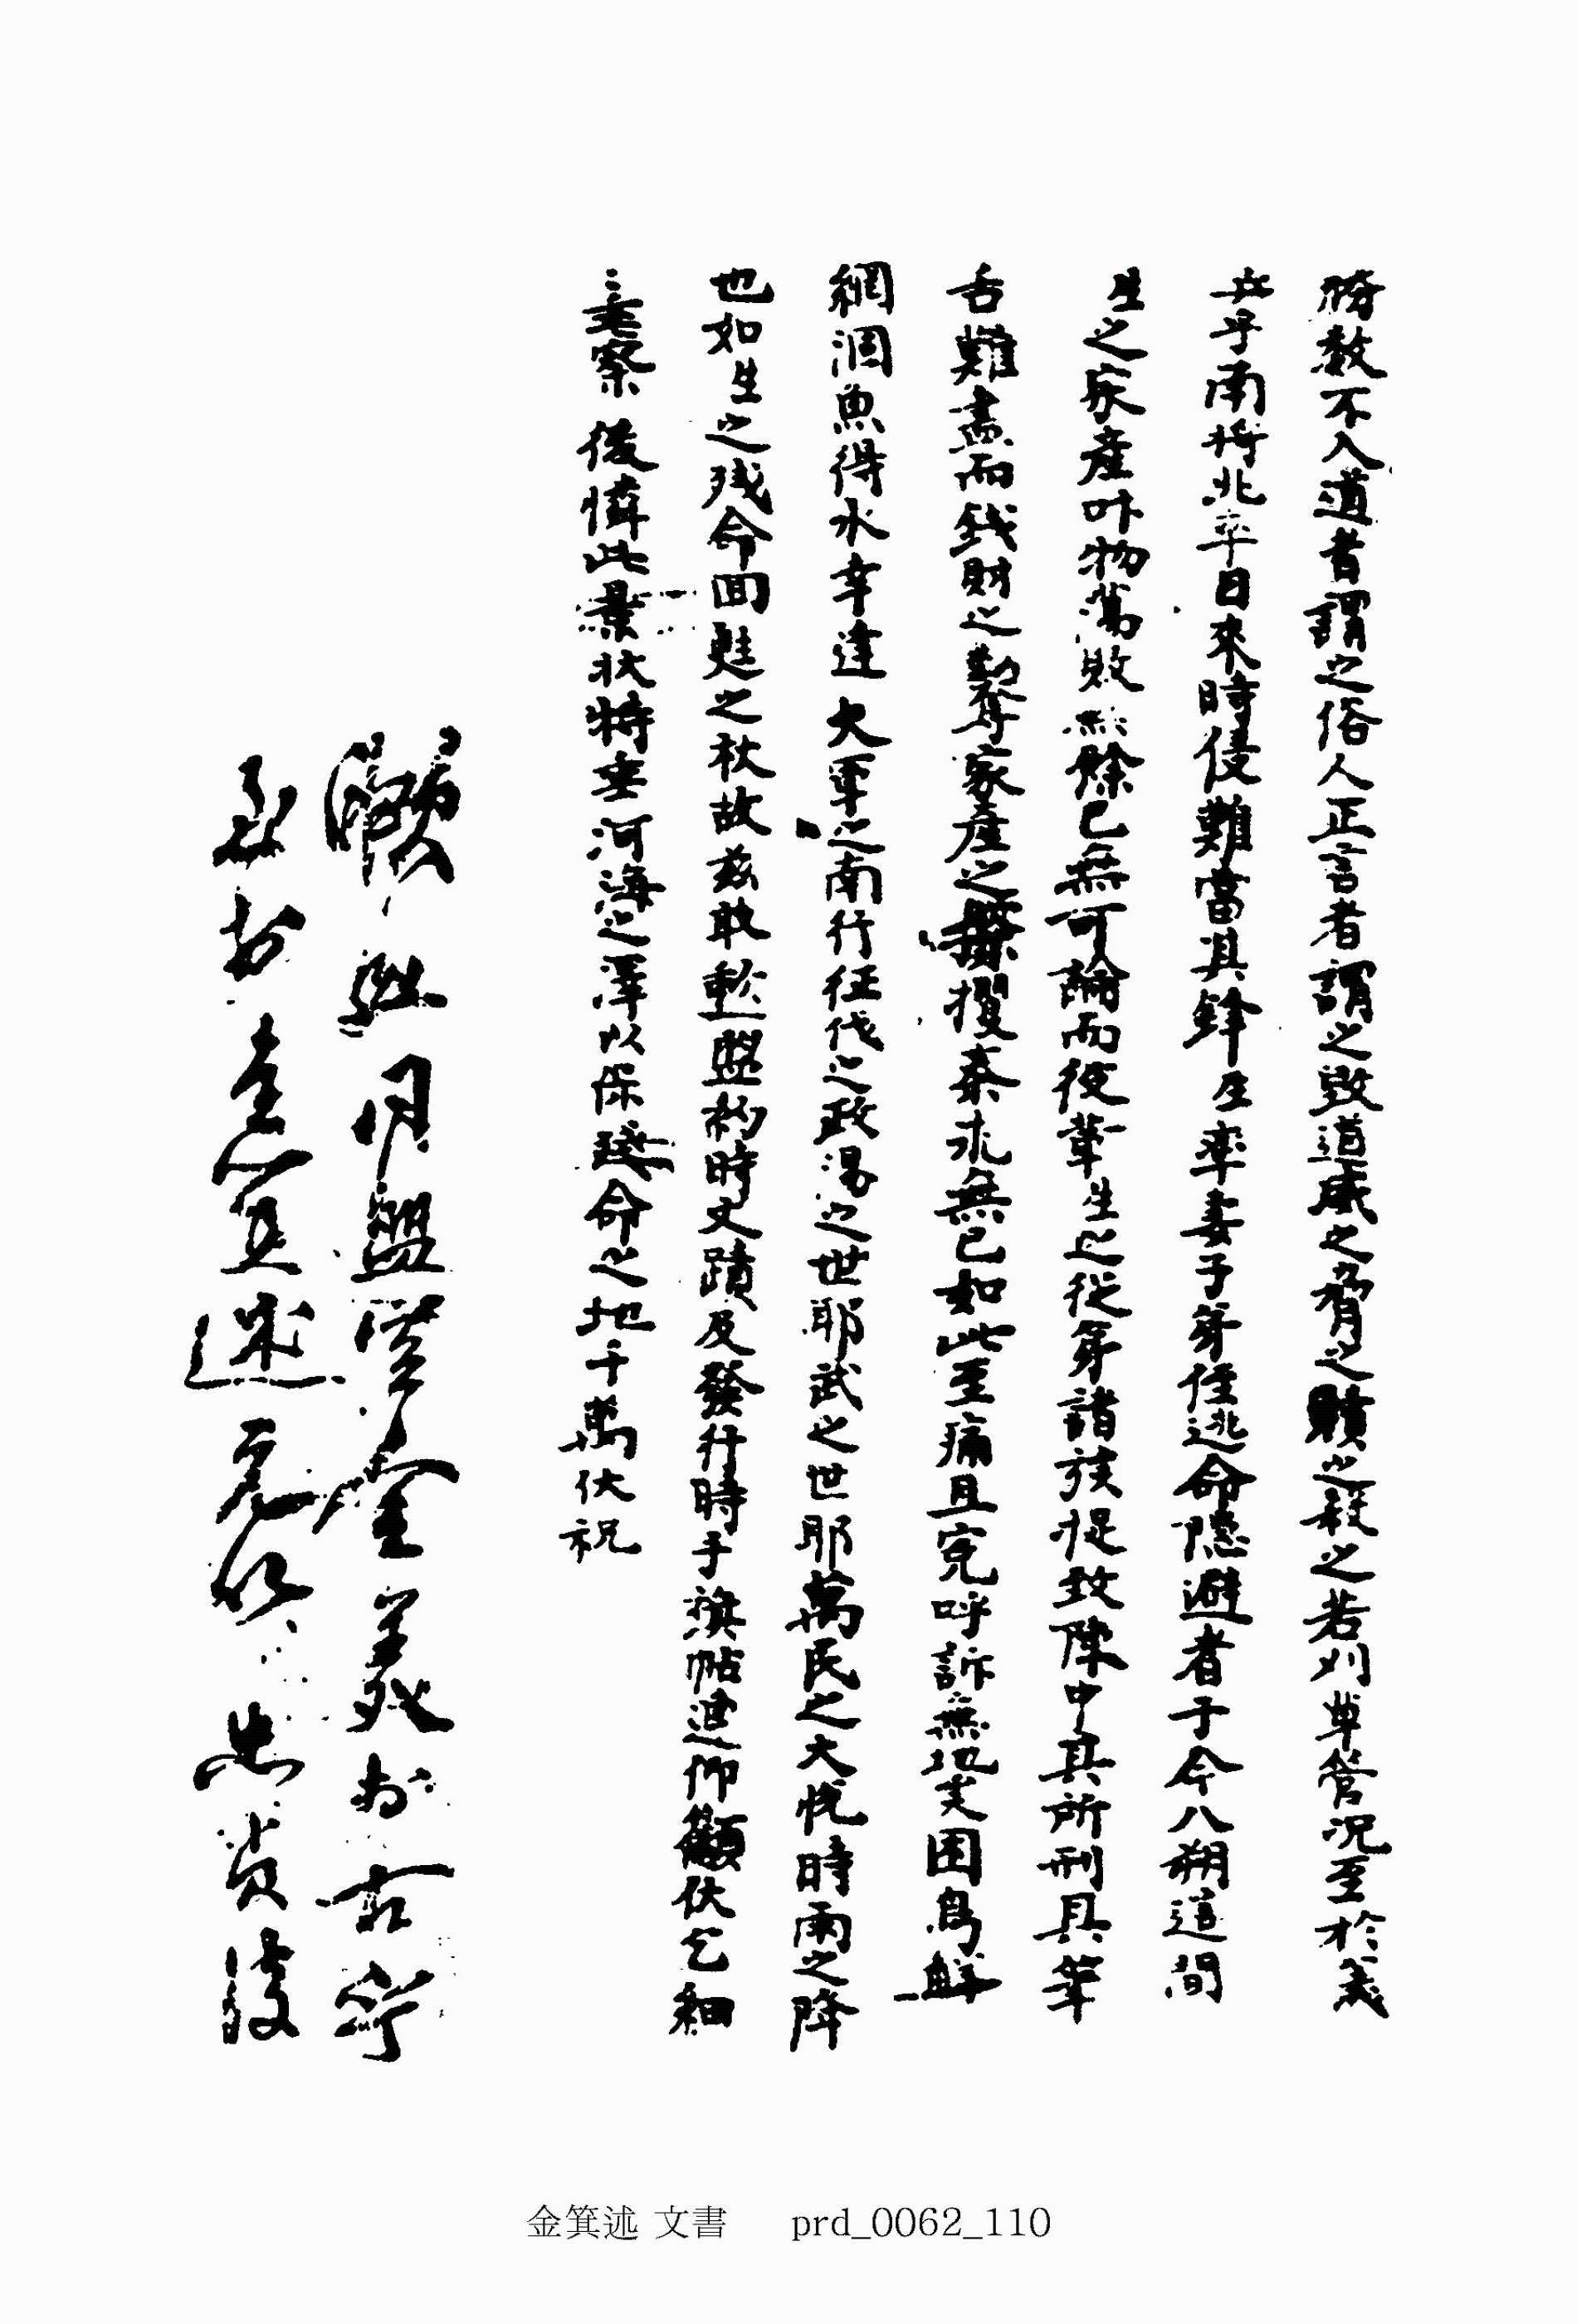 勝數不入道者謂之俗人正言者謂之毁道威之脅之贖之殺之若刈草管况至於義
兵乎南將北卒日來時侵難當其鋒生率妻子弟侄逃命隱避者于今八朔這間
生之家産什物蕩敗無餘已無可論而彼輩生之從弟諸族捉致陣中其所刑具筆
舌難盡而錢財之勒奪家産之攫奪求無已如此至痛且寃呼訴無地矣困鳥觧
網涸魚得水幸逢大軍之南行征伐之政湯之世耶武之世耶萬民之大悅時雨之降
也如生之殘命回甦之秋故茲敢盟約時文蹟及發行時手旗帖進仰籲伏乞細
察後憐此景狀特垂河海之澤以保殘命之地千萬伏祝
同盟金義於
述元仁忠
金箕述 文書 prd_0062_110